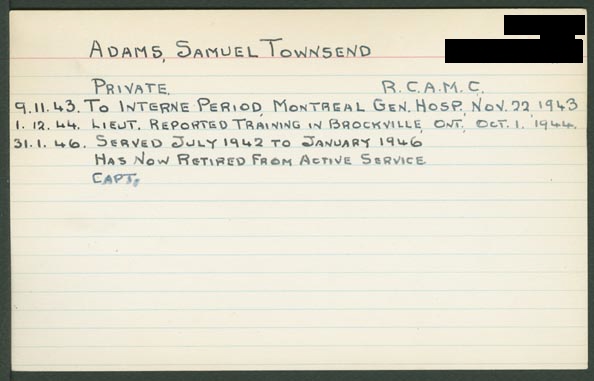 ADAMS, SAMUEL TOWNSEND
PRIVATE. R.C.A.M.C.
9.11.43. TO INTERNE PERIOD, MONTREAL GEN. HOSP., NOV. 22, 1943
1.12.44. LIEUT. REPORTED TRAINING IN BROCKVILLE, ONT., OCT. 1. 1944.
31.1.46. SERVED JULY 1942 TO JANUARY 1946
HAS NOW RETIRED FROM ACTIVE SERVICE
CAPT.